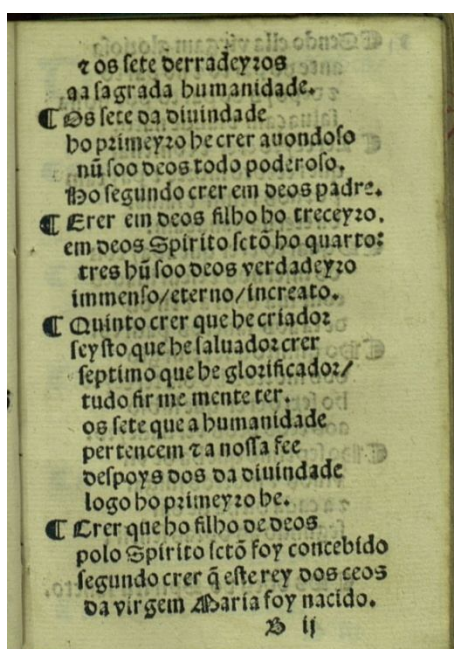 ⁊ os sete derradeyros
aa sagrada humanidade.
¶ Os sete da diuindade
ho primeyro he crer auondoso
nũ soo deos todo poderoso.
Ho segundo crer em deos padre.
¶ Crer em deos filho ho treceyro.
em deos Spirito sctõ ho quarto:
tres hũ soo deos verdadeyro
immenso/eterno/increato.
¶ Quinto crer que he criador
seysto que he saluador crer
septimo que he glorificador/
tudo fir me mente ter.
os sete que a humanidade
pertencem ⁊ a nossa fee
despoys dos da diuindade
logo ho primeyro he.
¶ Crer que ho filho de deos
polo Spirito sctõ foy concebido
segundo crer q̃ este rey dos ceos
da virgem Maria foy nacido.
B ij